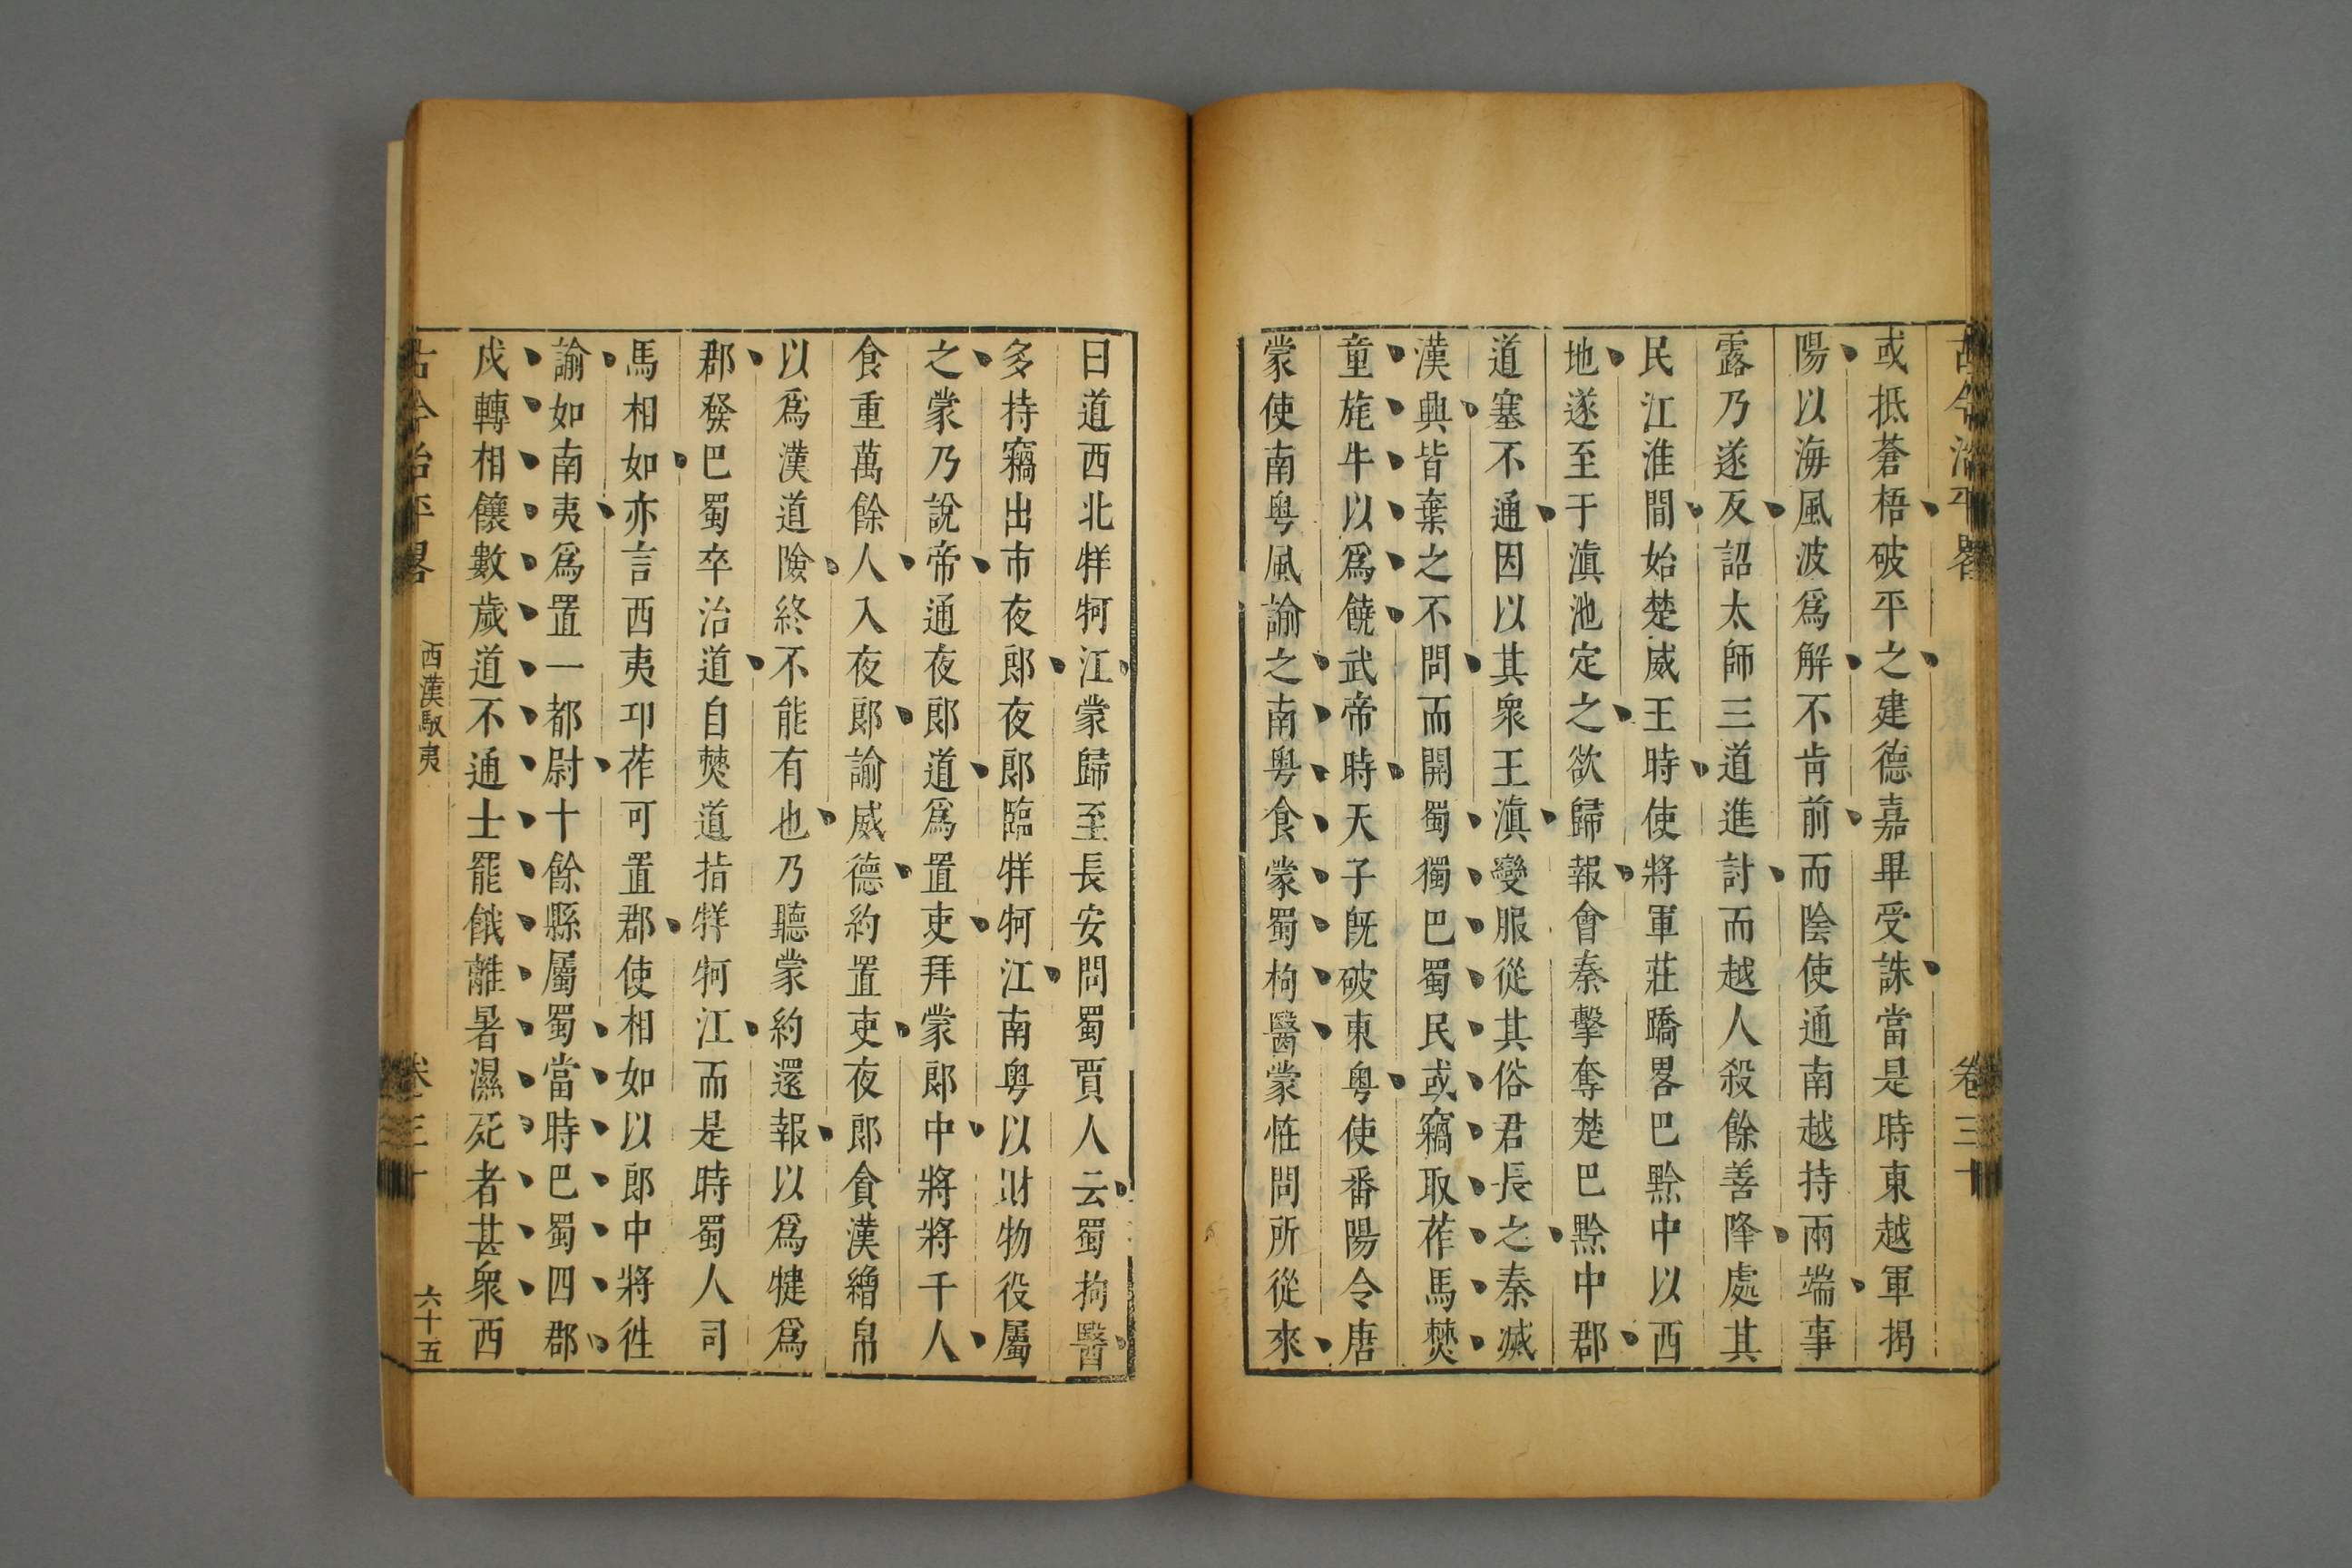 古今治平畧
卷三十
或抵蒼梧破平之建德嘉畢受誅當是時東越軍揭
陽以海風波爲解不肯前而陰使通南越持兩端事
露乃遂反詔太師三道進討而越人殺餘善降處其
民江淮間始楚威王時使將軍莊蹻畧巴黔中以西
地遂至于滇池定之欲歸報會秦擊奪楚巴黔中郡
道塞不通因以其衆王滇變服從其俗君長之秦滅
漢興皆棄之不問而開蜀獨巴蜀民或竊取莋馬僰
童旄牛以爲饒武帝時天子旣破東粤使番陽令唐
蒙使南粤風諭之南粤食蒙蜀枸醬蒙怪問所從來
曰道西北牂牁江蒙歸至長安問蜀賈人云蜀拘醬
多持竊出市夜郎夜郎臨牂牁江南粤以財物役屬
之蒙乃說帝通夜郎道爲置吏拜蒙郎中將將千人
食重萬餘人入夜郎諭威德約置吏夜郎貪漢繒帛
以爲漢道險終不能有也乃聽蒙約還報以爲犍爲
郡發巴蜀卒治道自僰道指牂牁江而是時蜀人司
馬相如亦言西夷邛莋可置郡使相如以郎中將徃
諭如南夷爲置一都尉十餘縣屬蜀當時巴蜀四郡
戍轉相饟數歲道不通士罷餓離暑濕死者甚衆西
古今治平畧
西漢馭夷
卷三十
六十五